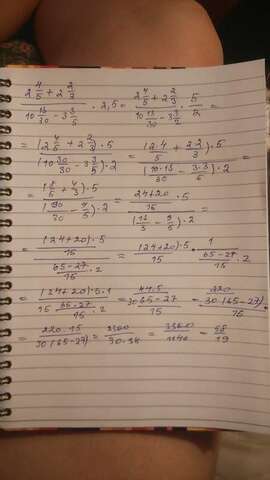 (2 4/5 + 2 2/3)/(10 13/30 - 3 3/5) · 2,5 = (2 4/5 + 2 2/3)/(10 13/30 - 3 3/5) · 5/2 =
= ((2 4/5 + 2 2/3) · 5)/((10 13/30 - 3 3/5) · 2) = ((2·4/5 + 2 2/3) · 5)/((10·13/30 - 3·3/5) · 2) =
= ((8/5 + 4/3) · 5)/((130/30 - 9/5) · 2) = ((24+20)/15 · 5)/((13/3 - 9/5) · 2) =
= ((24+20) · 5/15)/((65-27)/15 · 2) = ((24+20) · 5)/15 · 1/((65-27)/15 · 2)
= ((24+20) · 5 · 1)/(15 (65-27)/15 · 2) = (44·5)/(30(65-27)/15) = 220/(30·(65-27)/15)
= (220·15)/(30·(65-27)) = 3300/(30·38) = 3300/1140 = 58/19